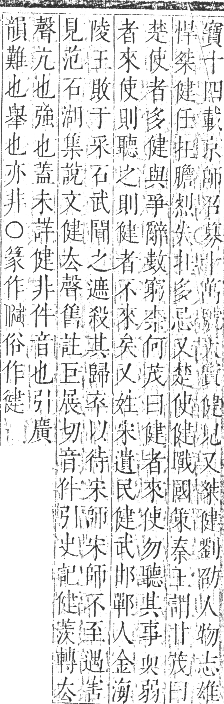 寶十四載京師召募十萬衆號天武健兒又桀健劉劭人物志雄
悍桀健任在膽烈失在多忌又楚使健戰國策秦王謂甘茂曰
楚使者多健與寡人爭辭數窮奈何茂曰健者來使勿聽其事其弱
者來使則聽之則健者不來矣又姓宋遺民健武邯鄲人金海
陵王敗于采石武聞之遮殺其歸卒以待宋師宋師不至遇害
見范石湖集說文健去聲舊註巨展切音件引史記健羨轉去
聲亢也強也蓋未詳健非件音也引廣
韻難也舉也亦非○篆作 俗作健